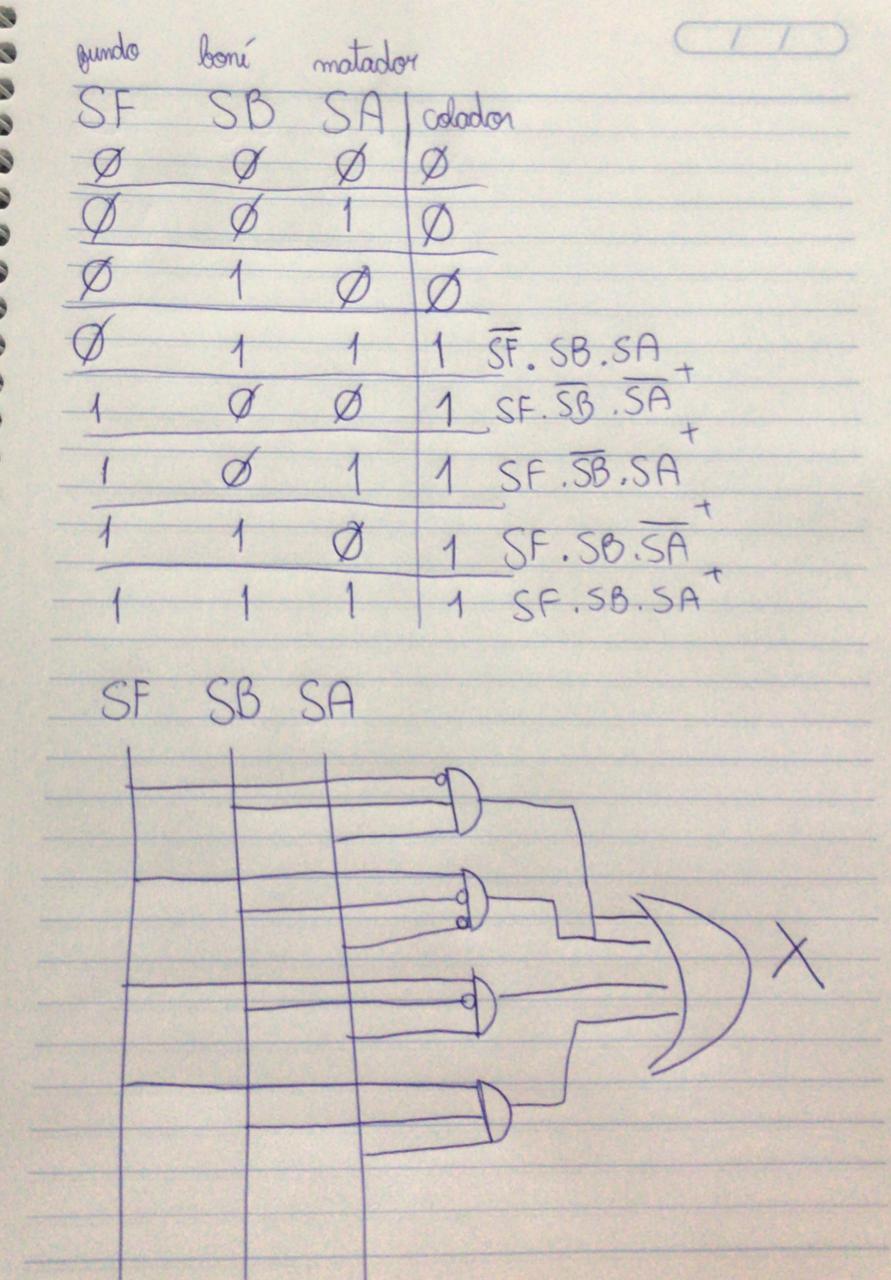 matador
SF SB SA colador
Ø Ø Ø Ø
Ø Ø 1 Ø
Ø 1 Ø Ø
Ø 1 1 1 S̅F̅ . SB . SA +
1 Ø Ø 1 SF . S̅B̅ . S̅A̅ +
1 Ø 1 1 SF . S̅B̅ . SA +
1 1 Ø 1 SF . SB . S̅A̅ +
1 1 1 1 SF . SB . SA
SF SB SA
X